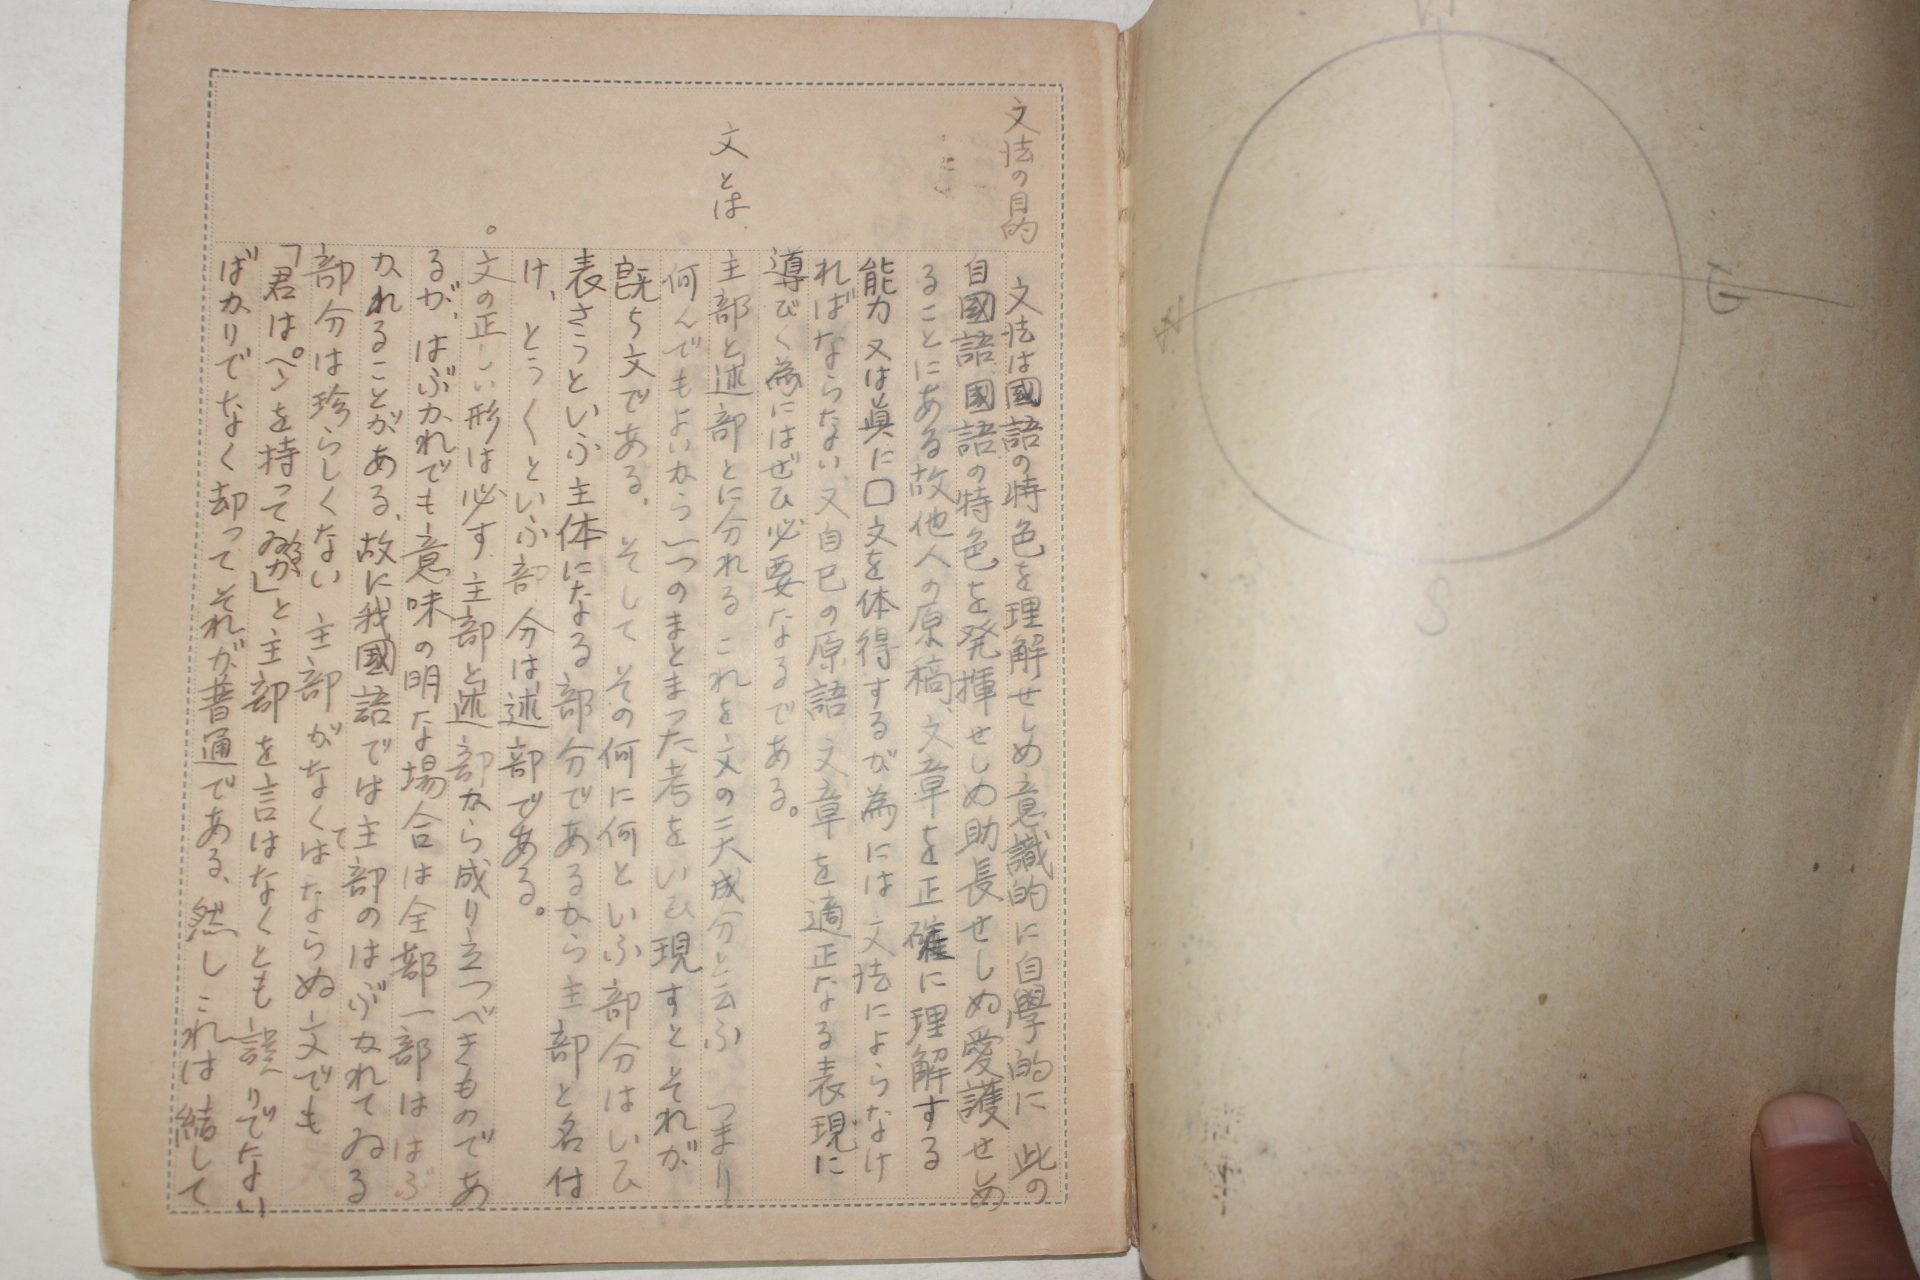 文法の目的
文法は國語の特色を理解せしめ意識的に自學的に此の
自國語國語の特色を発揮せしめ助長せしめ愛護せしめ
ることにある故他人の原稿、文章を正確に理解する
能力又は眞に口文を体得するが為には文法によらなけ
ればならない、又自己の原語、文章を適正なる表現に
導びく為にはぜひ必要なるである。
文とは
主部と述部とに分れるこれを文の二大成分と云ふ つまり
何んでもよいから一つのまとまった考をいひ現すとそれが
既ち文である、そしてその何に何といふ部分はいひ
表さうといふ主体になる部分であるから主部と名付
け、とうくといふ部分は述部である。
。文の正しい形は必す主部と述部から成り立つべきものであ
るが、はぶかれでも意味の明な場合は全部一部ははぶ
かれることがある、故に我國語では主部のはぶかれてゐる
部分は珍らしくない 主部がなくてはならぬ文でも
「君はペンを持って」と主部を言はなくとも誤りでない
ばかりでなく却ってそれが普通である、然しこれは結して
N
S